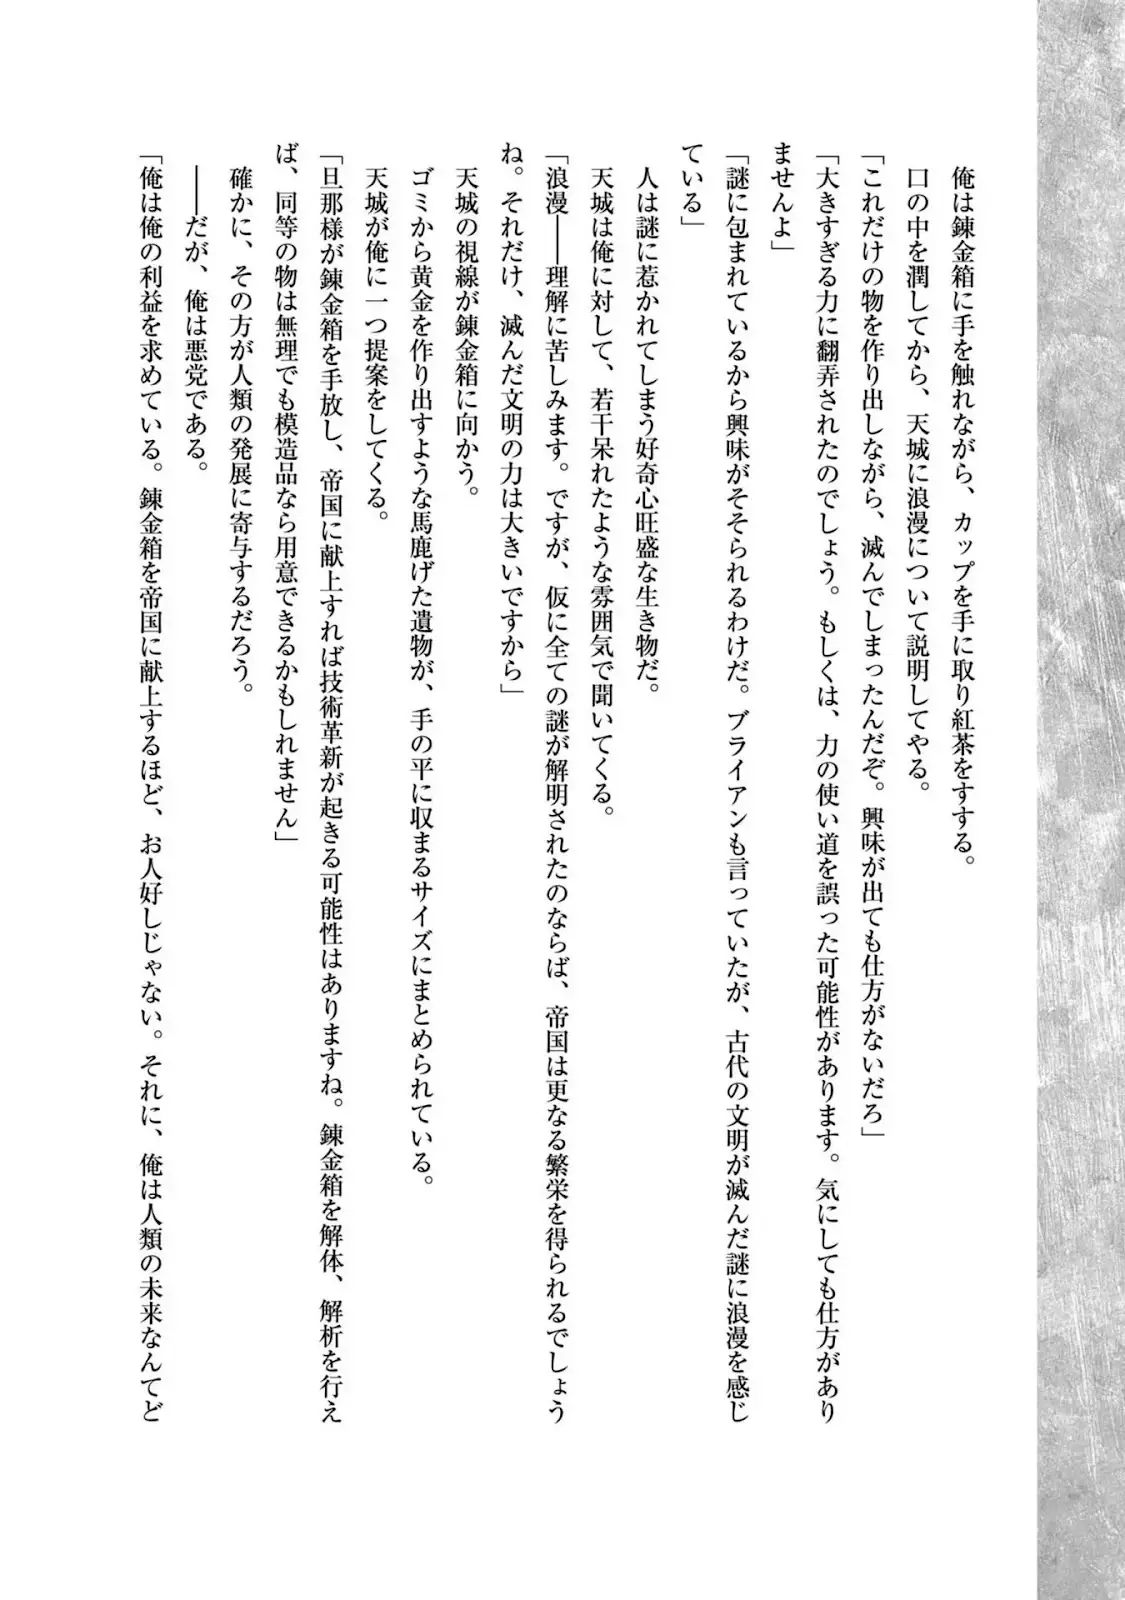 俺は錬金箱に手を触れながら、カップを手に取り紅茶をすする。
口の中を潤してから、天城に浪漫について説明してやる。
「これだけの物を作り出しながら、滅んでしまったんだぞ。興味が出ても仕方がないだろ」
「大きすぎる力に翻弄されたのでしょう。もしくは、力の使い道を誤った可能性があります。気にしても仕方があり
ませんよ」
「謎に包まれているから興味がそそられるわけだ。ブライアンも言っていたが、古代の文明が滅んだ謎に浪漫を感じ
ている」
人は謎に惹かれてしまう好奇心旺盛な生き物だ。
天城は俺に対して、若干呆れたような雰囲気で聞いてくる。
「浪漫――理解に苦しみます。ですが、仮に全ての謎が解明されたのならば、帝国は更なる繁栄を得られるでしょう
ね。それだけ、滅んだ文明の力は大きいですから」
天城の視線が錬金箱に向かう。
ゴミから黄金を作り出すような馬鹿げた遺物が、手の平に収まるサイズにまとめられている。
天城が俺に一つ提案をしてくる。
「旦那様が錬金箱を手放し、帝国に献上すれば技術革新が起きる可能性はありますね。錬金箱を解体、解析を行え
ば、同等の物は無理でも模造品なら用意できるかもしれません」
確かに、その方が人類の発展に寄与するだろう。
――だが、俺は悪党である。
「俺は俺の利益を求めている。錬金箱を帝国に献上するほど、お人好しじゃない。それに、俺は人類の未来なんてど